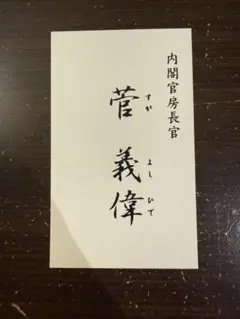 内閣官房長官
菅義偉
すがよしひで